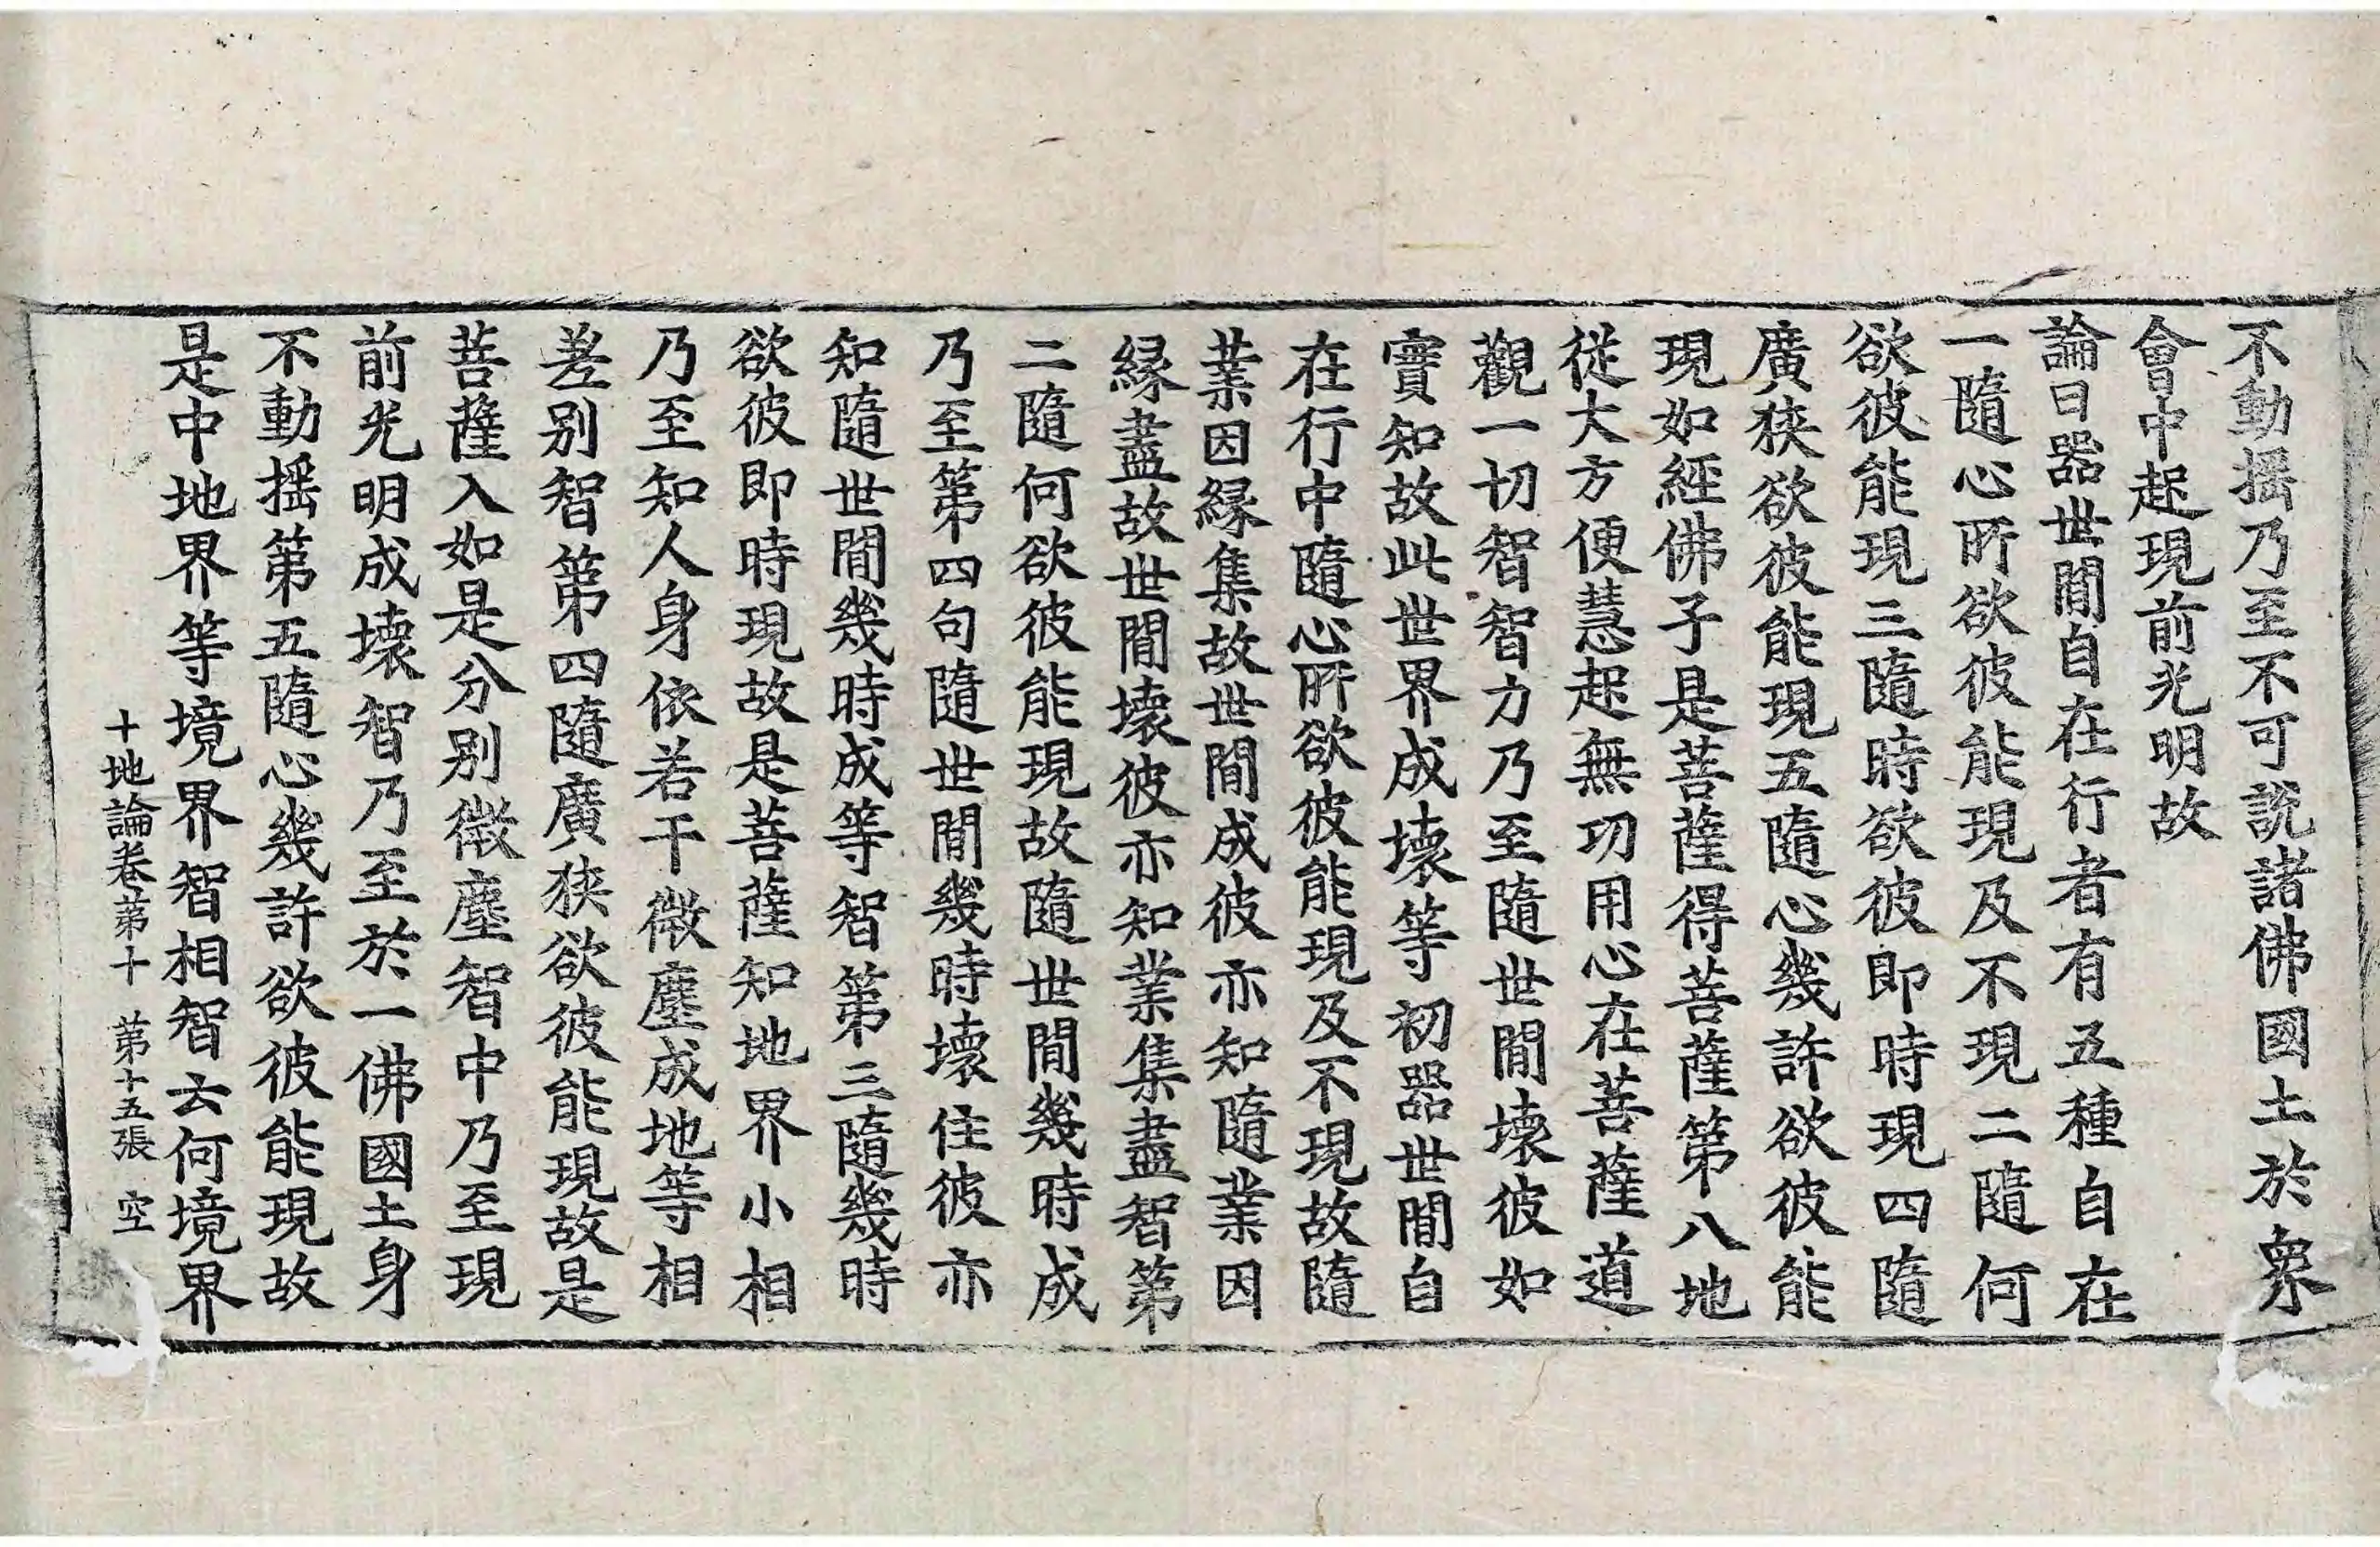 不動揺乃至不可說諸佛國土於衆
會中起現前光明故
論曰器世間自在行者有五種自在
一隨心所欲彼能現及不現二隨何
欲彼能現三隨時欲彼即時現四隨
廣狹欲彼能現五隨心幾許欲彼能
現如經佛子是菩薩得菩薩第八地
從大方便慧起無功用心在菩薩道
觀一切智智力乃至隨世間壞彼如
實知故此世界成壞等初器世間自
在行中隨心所欲彼能現及不現故隨
業因緣集故世間成彼亦知隨業因
緣盡故世間壞彼亦知業集盡智第
二隨何欲彼能現故隨世間幾時成
乃至第四句隨世間幾時壞住彼亦
知隨世間幾時成等智第三隨幾時
欲彼即時現故是菩薩知地界小相
乃至知人身依若干微塵成地等相
差别智第四隨廣狹欲彼能現故是
菩薩入如是分别微塵智中乃至現
前光明成壞智乃至於一佛國土身
不動揺第五隨心幾許欲彼能現故
是中地界等境界智相智云何境界
十地論卷第十 第十五張 空